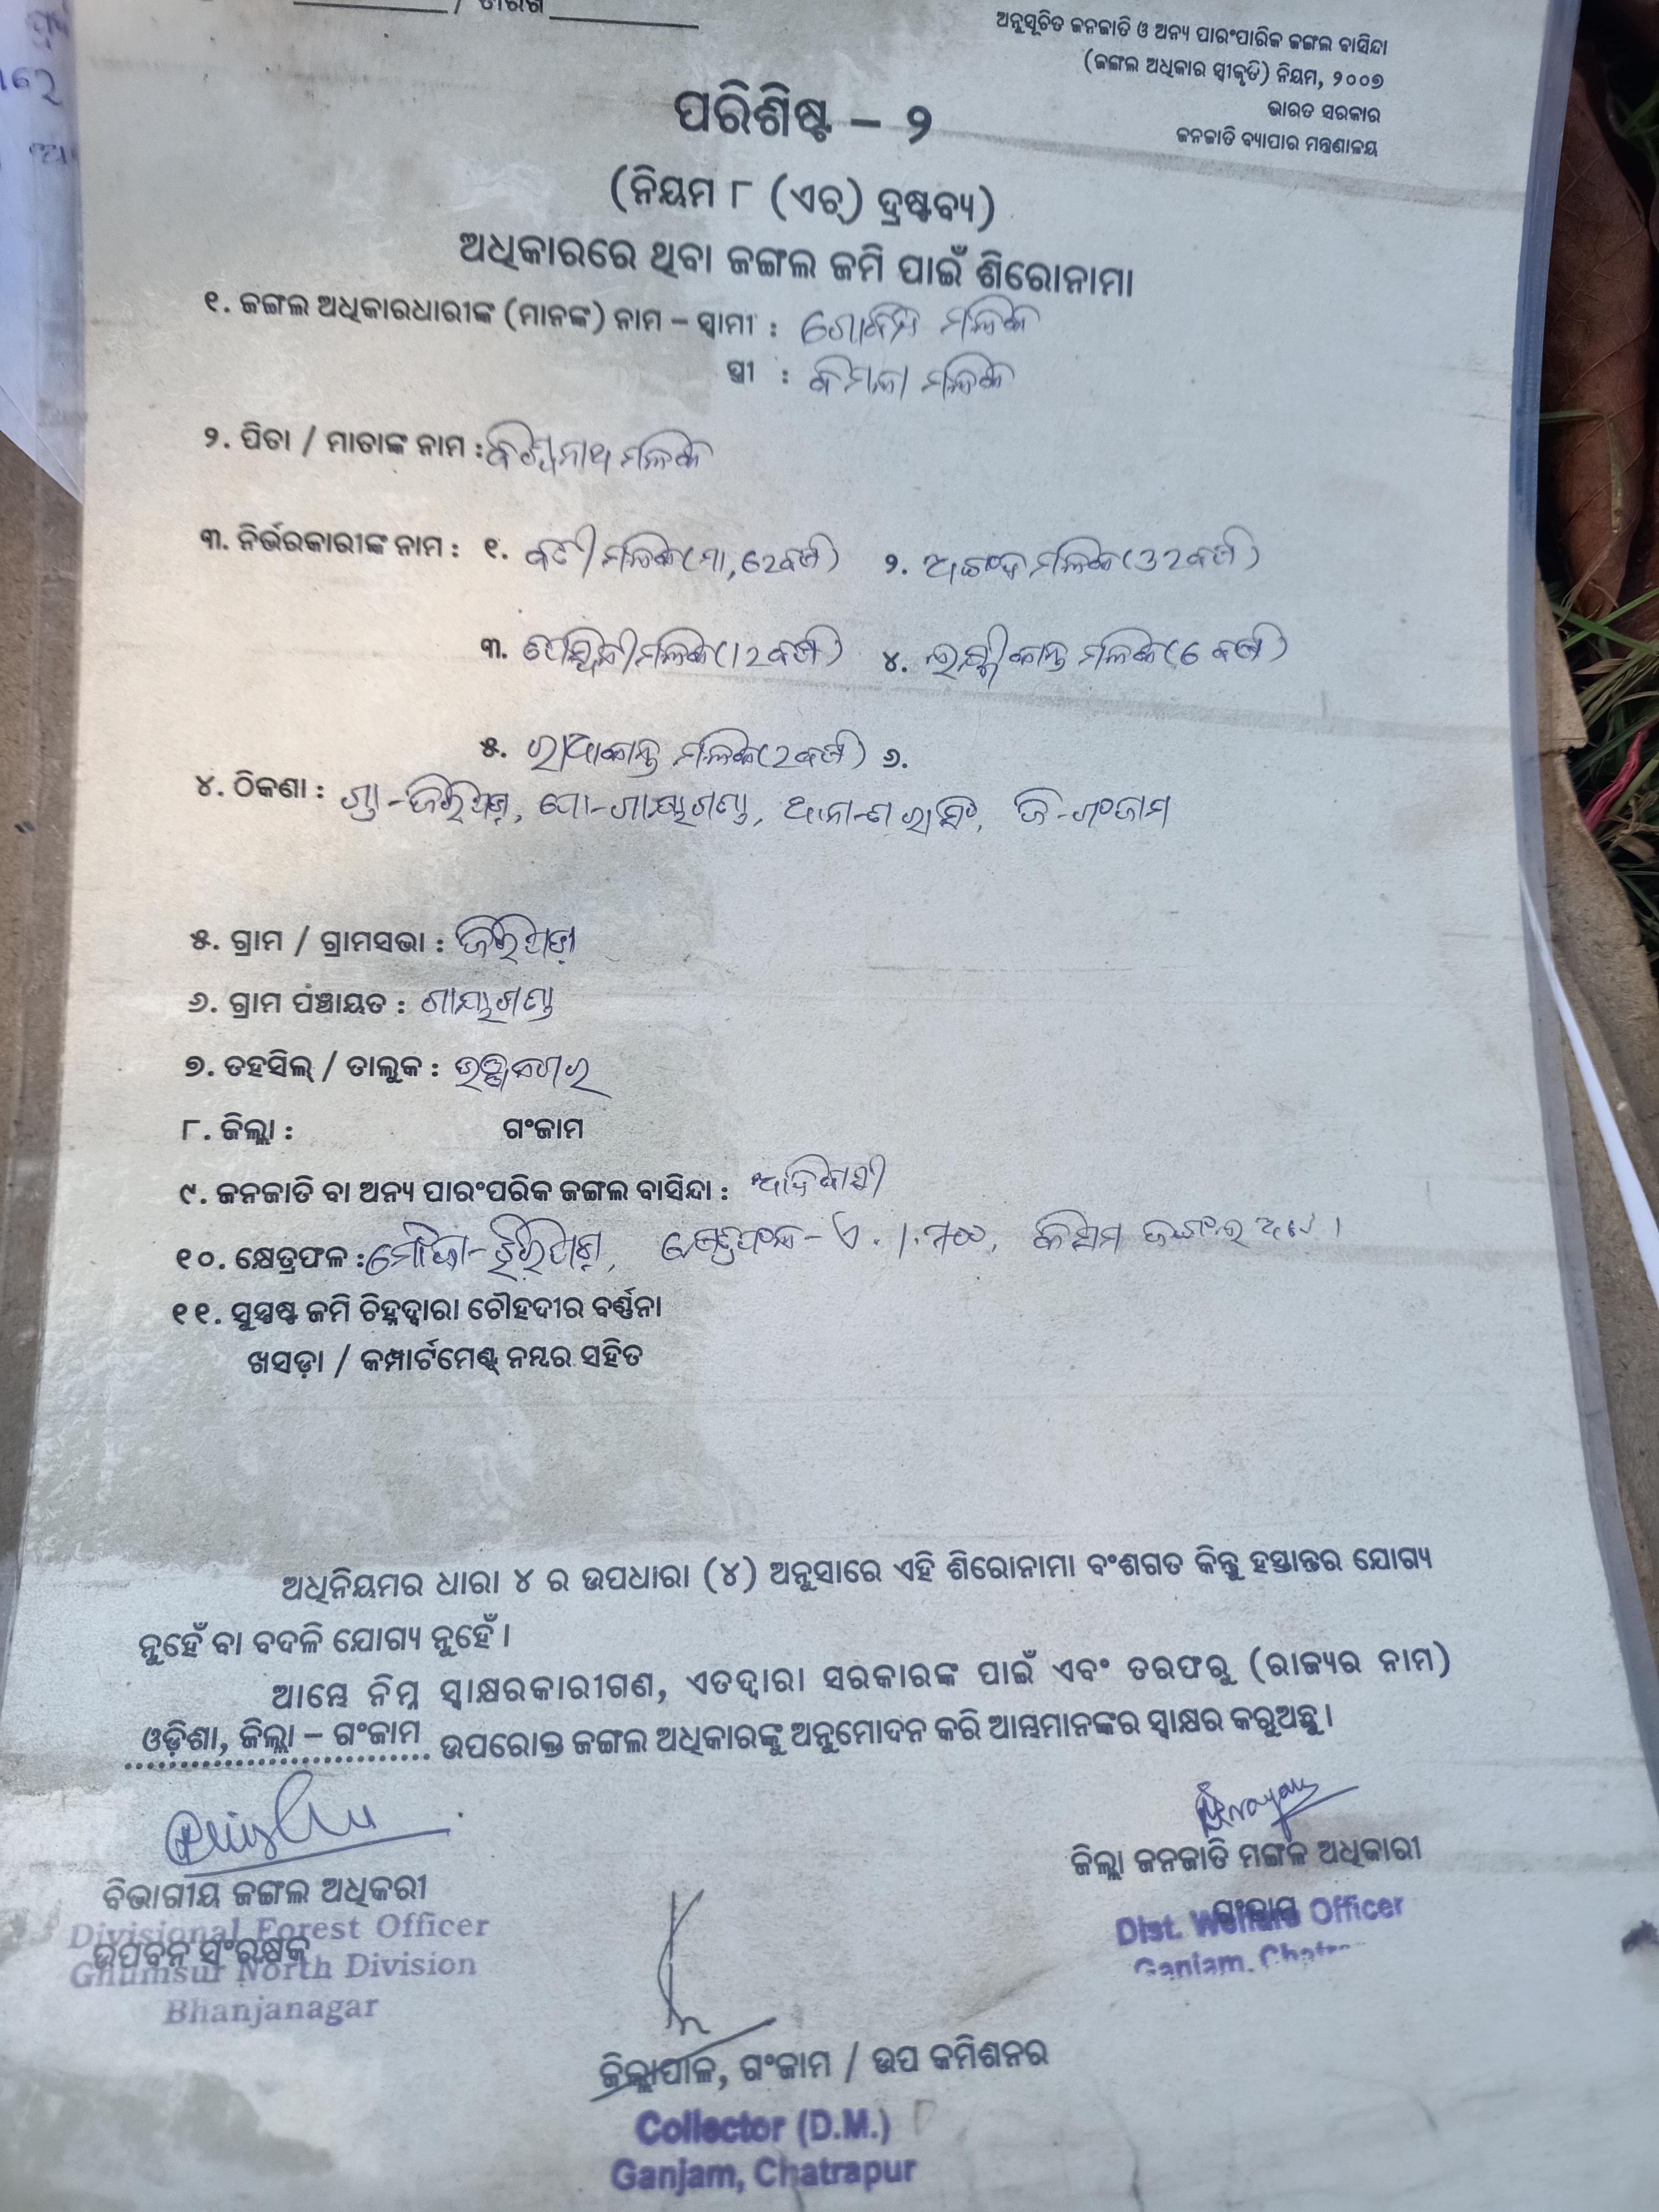 / ତାରିଖ
ଅନୁସୂଚିତ ଜନଜାତି ଓ ଅନ୍ୟ ପାରଂପାରିକ ଜଙ୍ଗଲ ବାସିନ୍ଦା
(ଜଙ୍ଗଲ ଅଧିକାର ସ୍ୱୀକୃତି) ନିୟମ, ୨୦୦୭
ଭାରତ ସରକାର
ଜନଜାତି ବ୍ୟାପାର ମନ୍ତ୍ରଣାଳୟ
ପରିଶିଷ୍ଟ – ୨
(ନିୟମ ୮ (ଏଚ୍) ଦ୍ରଷ୍ଟବ୍ୟ)
ଅଧିକାରରେ ଥିବା ଜଙ୍ଗଲ ଜମି ପାଇଁ ଶିରୋନାମା
୧. ଜଙ୍ଗଲ ଅଧିକାରଧାରୀଙ୍କ (ମାନଙ୍କ) ନାମ – ସ୍ୱାମୀ : ଗୋବିନ୍ଦ ମଲିକ
ସ୍ତ୍ରୀ : ବିମଳା ମଲିକ
୨. ପିତା / ମାତାଙ୍କ ନାମ : ବିଶ୍ୱନାଥ ମଲିକ
୩. ନିର୍ଭରକାରୀଙ୍କ ନାମ : ୧. ମଲିକ (ମା, ୬୨ବର୍ଷ) ୨. ମଲିକ (୩୨ବର୍ଷ)
୩. ମଲିକ (୧୨ବର୍ଷ) ୪. ଲକ୍ଷ୍ମୀକାନ୍ତ ମଲିକ (୬ ବର୍ଷ)
୫. ରାଧାକାନ୍ତ ମଲିକ (୨ବର୍ଷ) ୬.
୪. ଠିକଣା : ଗ୍ରା - ପୋ - ଥାନା - ଜି - ଗଂଜାମ
୫. ଗ୍ରାମ / ଗ୍ରାମସଭା :
୬. ଗ୍ରାମ ପଞ୍ଚାୟତ :
୭. ତହସିଲ୍ / ତାଲୁକ : ଭଞ୍ଜନଗର
୮. ଜିଲ୍ଲା : ଗଂଜାମ
୯. ଜନଜାତି ବା ଅନ୍ୟ ପାରଂପରିକ ଜଙ୍ଗଲ ବାସିନ୍ଦା : ଆଦିବାସୀ
୧୦. କ୍ଷେତ୍ରଫଳ : ମୌଜା - କିସମ
୧୧. ସୁସ୍ପଷ୍ଟ ଜମି ଚିହ୍ନଦ୍ୱାରା ଚୌହଦୀର ବର୍ଣ୍ଣନା
ଖସଡ଼ା / କମ୍ପାର୍ଟମେଣ୍ଟ୍ ନମ୍ବର ସହିତ
ଅଧିନିୟମର ଧାରା ୪ ର ଉପଧାରା (୪) ଅନୁସାରେ ଏହି ଶିରୋନାମା ବଂଶଗତ କିନ୍ତୁ ହସ୍ତାନ୍ତର ଯୋଗ୍ୟ
ନୁହେଁ ବା ବଦଳି ଯୋଗ୍ୟ ନୁହେଁ ।
ଆମ୍ଭେ ନିମ୍ନ ସ୍ୱାକ୍ଷରକାରୀଗଣ, ଏତଦ୍ୱାରା ସରକାରଙ୍କ ପାଇଁ ଏବଂ ତରଫରୁ (ରାଜ୍ୟର ନାମ)
ଓଡ଼ିଶା, ଜିଲ୍ଲା – ଗଂଜାମ ଉପରୋକ୍ତ ଜଙ୍ଗଲ ଅଧିକାରଙ୍କୁ ଅନୁମୋଦନ କରି ଆମ୍ଭମାନଙ୍କର ସ୍ୱାକ୍ଷର କରୁଅଛୁ ।
ବିଭାଗୀୟ ଜଙ୍ଗଲ ଅଧିକରୀ
Divisional Forest Officer
ଉପବନ ସଂରକ୍ଷକ
Ghumsur North Division
Bhanjanagar
ଜିଲ୍ଲା ଜନଜାତି ମଙ୍ଗଳ ଅଧିକାରୀ
ଗଂଜାମ
Dist. Welfare Officer
Ganjam, Chatra
ଜିଲ୍ଲାପାଳ, ଗଂଜାମ / ଉପ କମିଶନର
Collector (D.M.)
Ganjam, Chatrapur